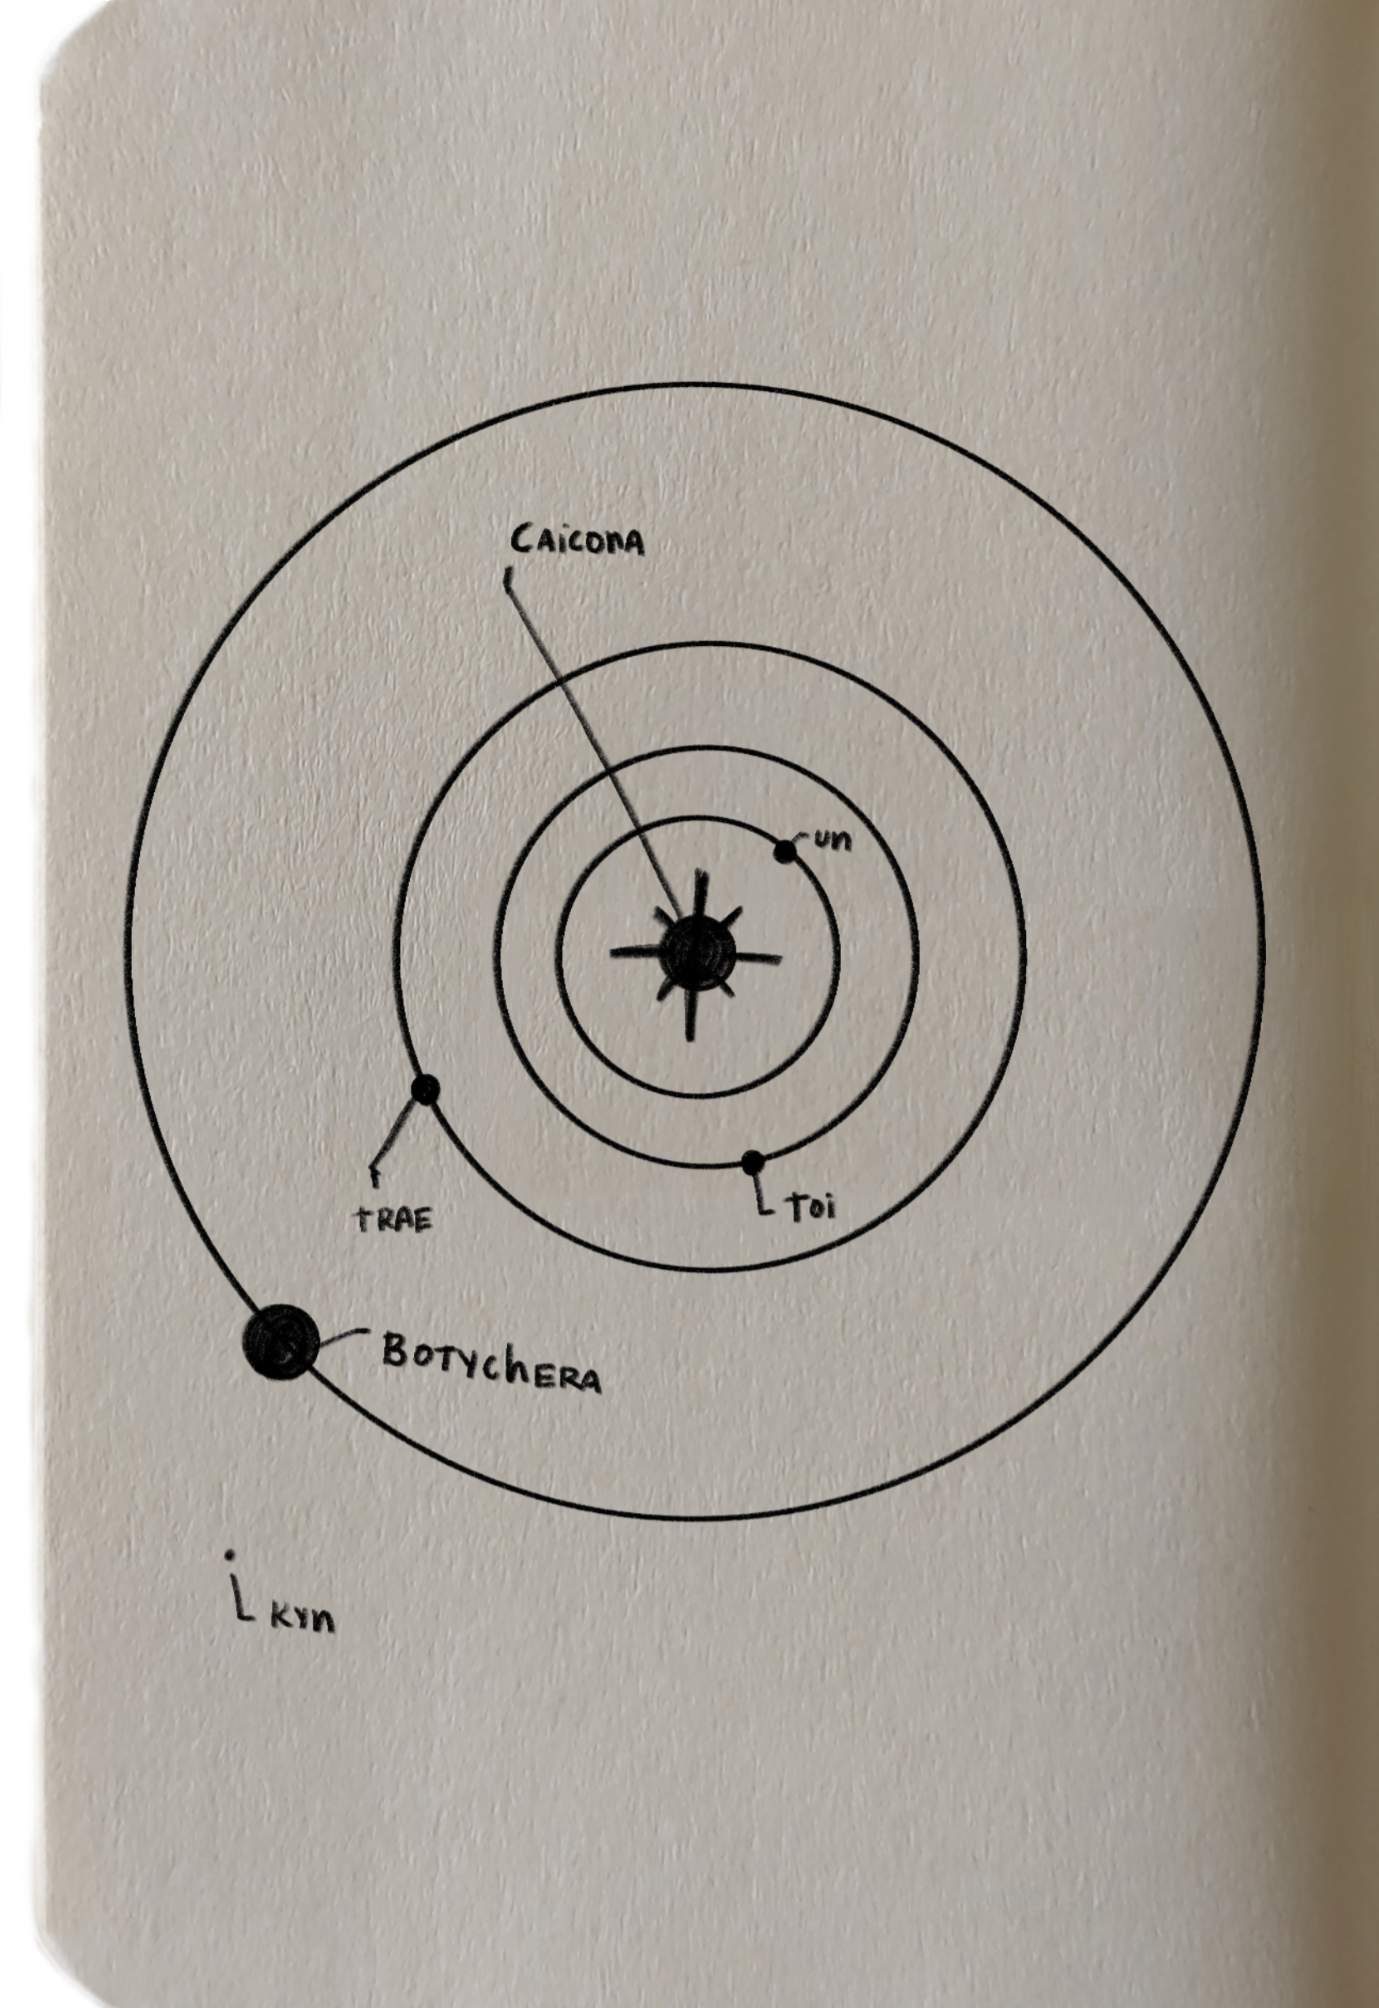 CAicONA
un
TRAE
Toi
BOTYchERA
Kyn